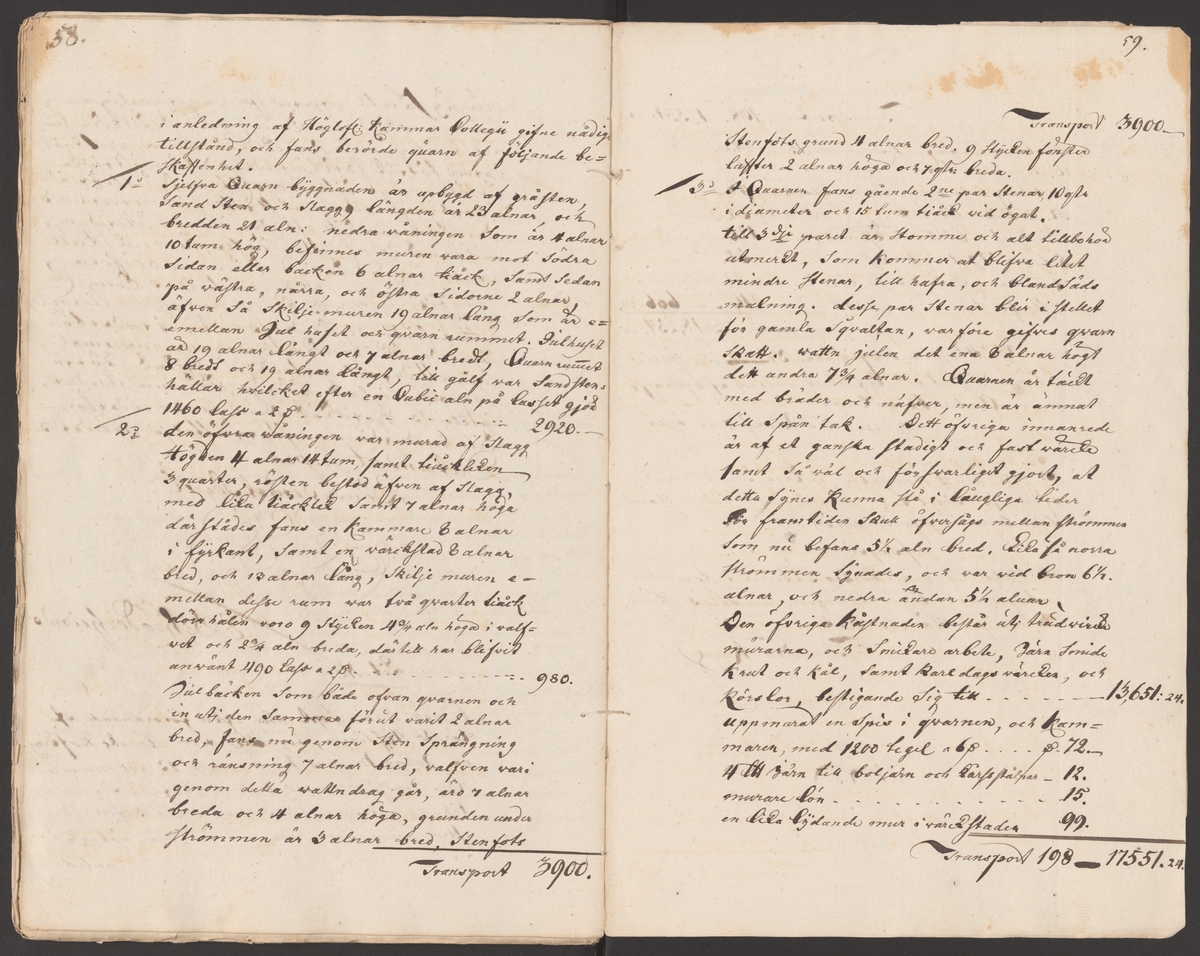 58.
i anledning af Högloft: Kammar Collegii gifne nådig
tillstånd, och fans berörde quarn af följande be=
skaffenhet.
1o Sjelfva Quarn byggnaden är upbygd af gråsten,
Sand Sten och Slagg längden är 23 alnar, och
bredden 21 aln: nedra våningen som är 4 alnar
10 tum hög, befinnes muren vara mot Södra
Sidan eller backen 6 alnar tiåck, samt sedan
på västra, nårra, och östra Sidorne 2 alnar,
äfven så Skilje muren 19 alnar lång som är e=
emellan Jul huset och qvarn rummet. Julhuset
är 19 alnar långt och 7 alnar bredt, Quarn rummet
8 bredt och 19 alnar långt, till gålf var Sandstens
hällar hvilcket efter en Cubic aln på lasset gjör
1460 lass a 2 p . . . . . . . 2920.—
2o den öfvra våningen var murad af Slagg
Högden 4 alnar 14 tum, samt tiåckleken
3 quarter, rösten bestod äfven af Slagg,
med lika tiåcklek samt 7 alnar höga
där städes fans en kammare 8 alnar
i fyrkant, samt en wärckstad 8 alnar
bred, och 13 alnar lång, Skilje muren e=
mellan desse rum war två qvarter tiåck
dörr hålen voro 9 Stycken 4 3/4 aln höga i valf=
vet och 2 3/4 aln breda, därtill har blifvit
använt 490 lass a 2 p. . . . . . . . 980.
Julbäcken som både ofvan qvarnen och
in uti den samma förut varit 2 alnar
bred, fans nu genom Sten Sprängning
och ränsning 7 alnar bred, valfven vari
genom detta wattndrag går, äro 7 alnar
breda och 4 alnar höga, grunden under
Strömmen är 3 alnar bred, Stenfots
Transport 3900.
59.
Transport 3900—
Stenfots grund 4 alnar bred. 9 Stycken fönster
lufter 2 alnar höga och 7 qtr: breda.
3o I Quarnen fans gående 2ne par Stenar, 10 qtr
i diameter och 15 tum tiåck vid ögat.
till 3dje paret är Stomme och alt tillbehör
utmerkt, som kommer at blifva litet
mindre Stenar, till hafra, och bland Säds
malning. desse par Stenar blir i stellet
för gamla Sqvaltan, varföre gifves qvarn
skatt. wattn julen det ena 8 alnar högt
dett andra 7 3/4 alnar. Quarnen är täckt
med bräder och näfver, men är ämnat
till Spån tak. Dett öfvriga innanrede
är af et ganska stadigt och fast wärcke
samt så väl och försvarligt gjort, at
detta synes kunna stå i låugliga tider
för framtiden skull öfversågs mellan strömmen
som nu befans 5 1/2 aln bred. Lika så norra
Strömmen synades, och var vid bron 6 1/2.
alnar, och nedra ändan 5 1/2 alnar
Den öfvriga kåstnaden består uti trädvircke
murarna, och Snickare arbete, Järn Smide
krut och kål, samt karldagsvärcken, och
körslor, bestigande sig till . . . . . 13,651: 24.
uppmurat en Spis i qvarnen, och kam=
maren, med 1200 tegel a 6 p . . . . p. 72.—
4 Järn till boljärn och — 12.
murare lön . . . . . . . . . . 15.
en lika lydande mur i värckstaden 99.
Transport 198 — 17551. 24.